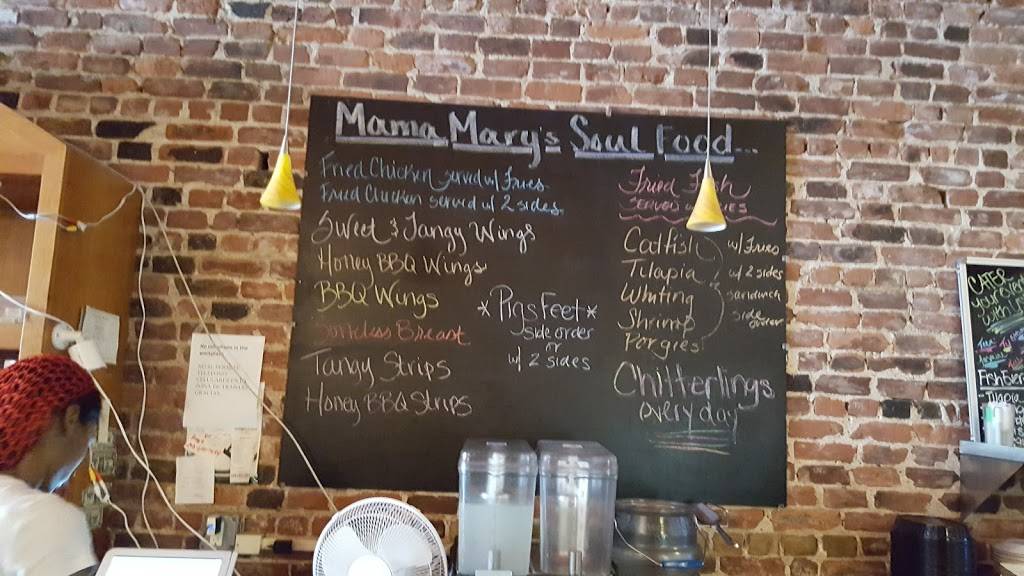 Mama Mary's Soul Food...
Fried Chicken served w/ Fries
Fried Chicken served w/ 2 sides
Sweet & Tangy Wings
Honey BBQ Wings
BBQ Wings
Boneless Breast
Tangy Strips
Honey BBQ Strips
*Pigs Feet*
side order
or
w/ 2 sides
Fried Fish
Catfish
Tilapia
Whiting
Shrimp
Porgies
w/ Fries
w/ 2 sides
Sandwich
side order
Chitterlings
everyday